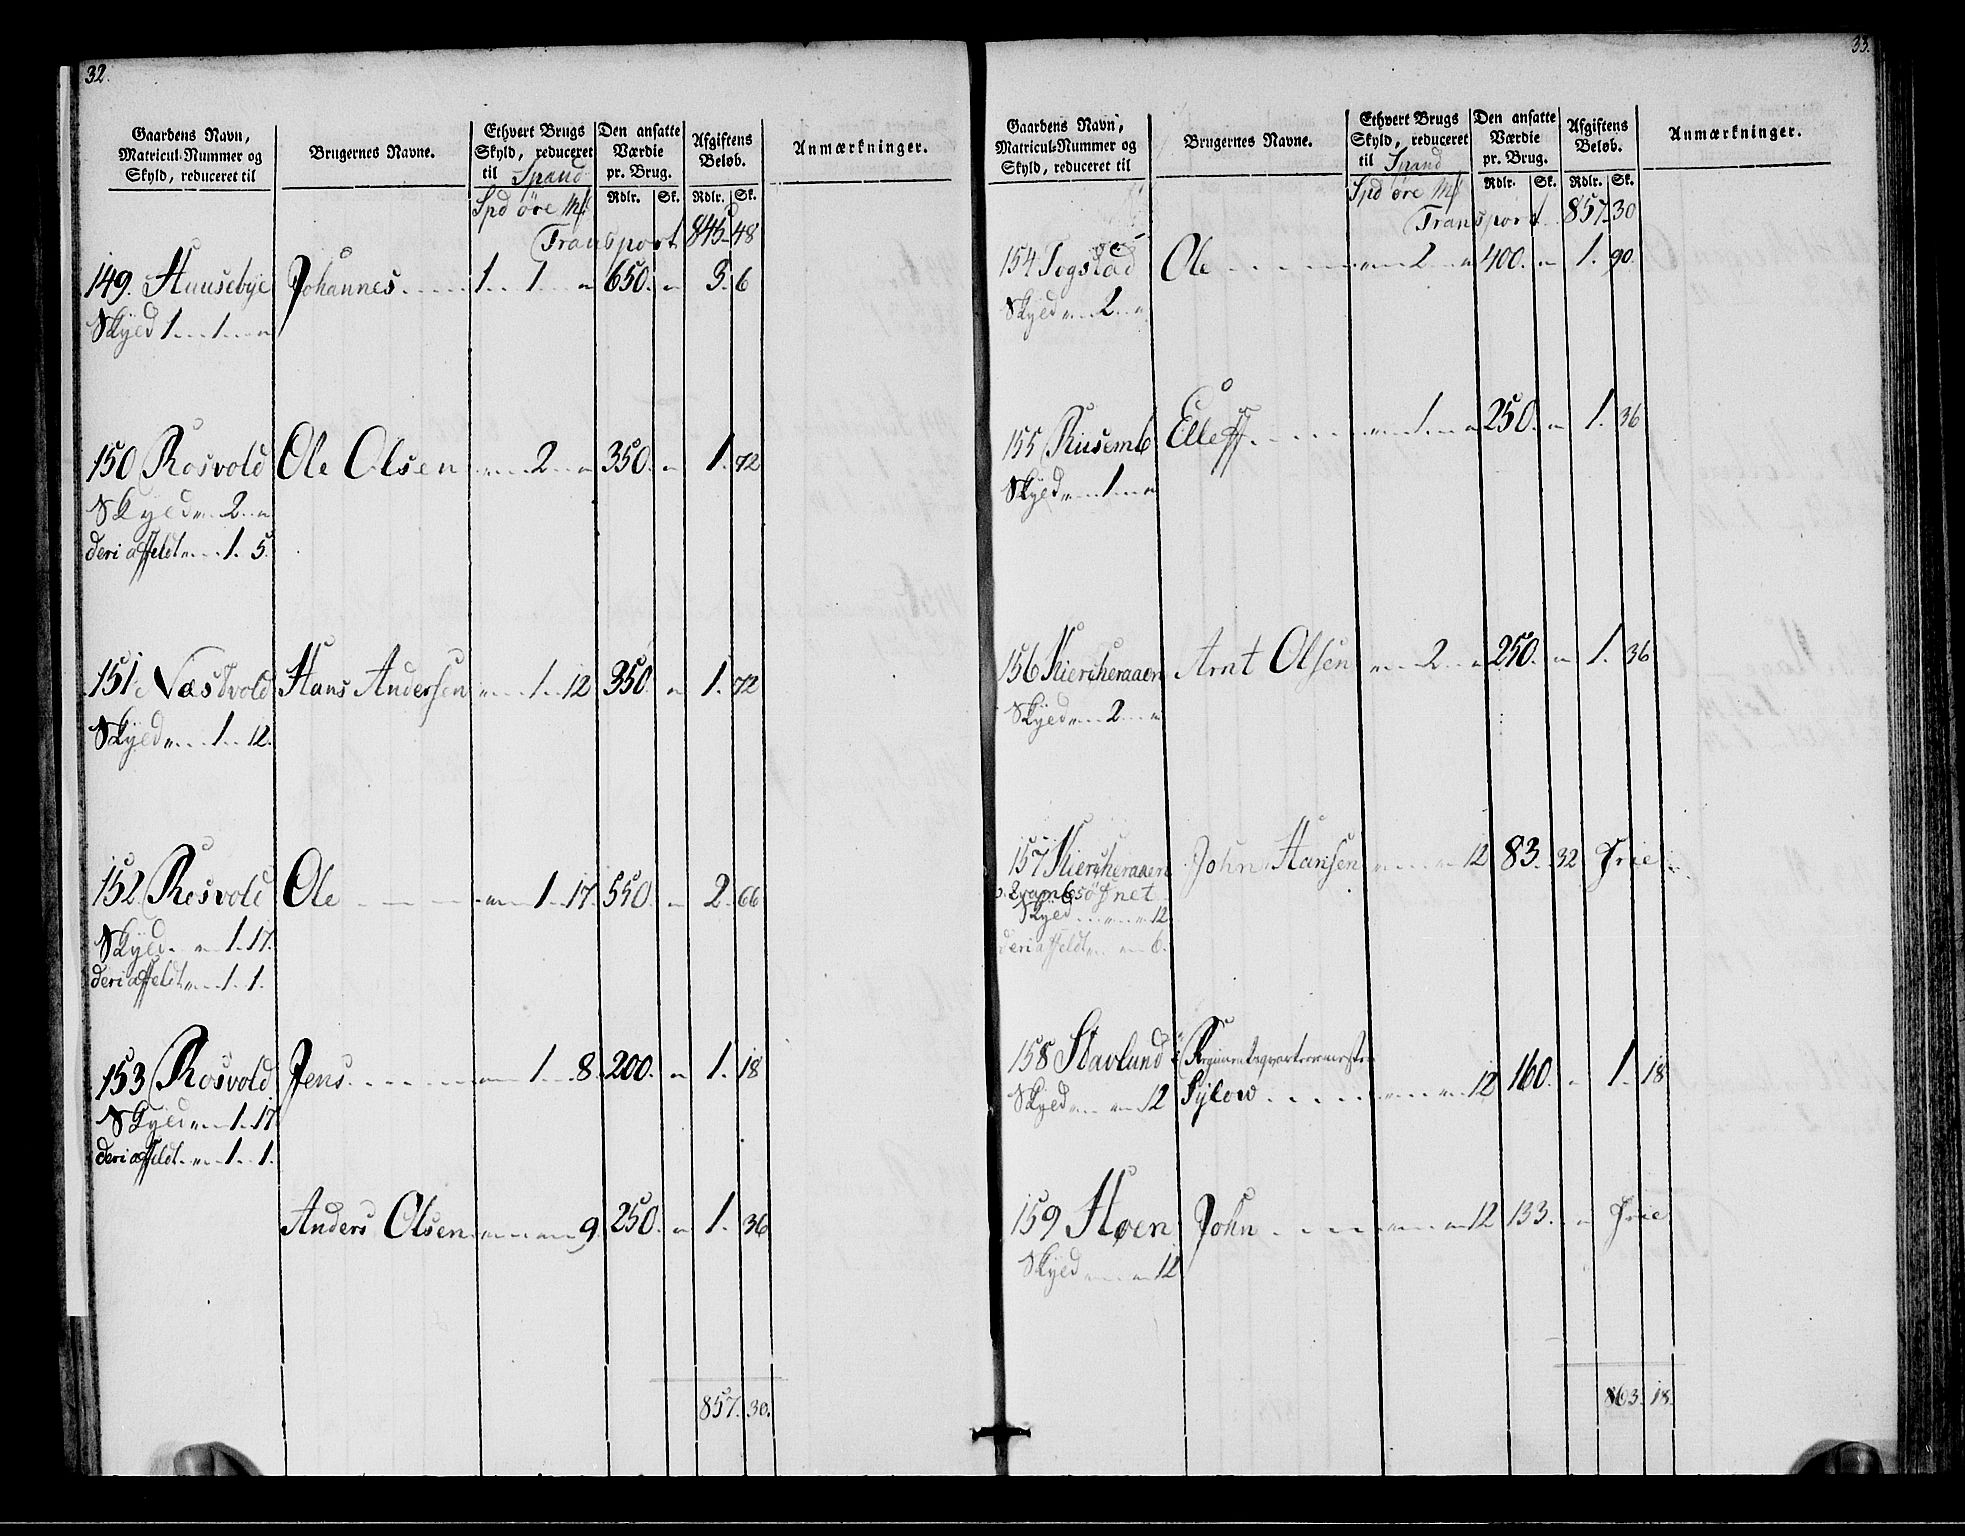 32.
Gaardens Navn, Matricul-Nummer og Skyld, reduceret til | Brugernes Navne. | Ethvert Brugs Skyld, reduceret til Spand | Den ansatte Værdie pr. Brug. | Afgiftens Beløb. | Anmærkninger.
Spd öre Mk | Rdlr. | Sk. | Rdlr. | Sk.
Transport 845. 48
149. Huusebye Johannes 1. 1. " 650. " 3. 6
Skyld 1. 1. "
150 Rosvold Ole Olsen " 2. " 350. " 1. 72
Skyld " 2. "
deri affeldt " 1. 5.
151. Næstvold Hans Andersen " 1. 12 350. " 1. 72
Skyld " 1. 12.
152 Rosvold Ole " 1. 17. 550. " 2. 66
Skyld " 1. 17.
deri affeldt " 1. 1.
153 Rosvold Jens " 1. 8. 200. " 1. 18
Skyld " 1. 17
deri affeldt " 1. 1.
Anders Olsen " " 9. 250. " 1. 36
857. 30.
33.
Gaardens Navn, Matricul-Nummer og Skyld, reduceret til | Brugernes Navne. | Ethvert Brugs Skyld, reduceret til Spand | Den ansatte Værdie pr. Brug. | Afgiftens Beløb. | Anmærkninger.
Spd öre Mk | Rdlr. | Sk. | Rdlr. | Sk.
Transport 857. 30
154 Togstad Ole " 2 " 400. " 1. 90.
Skyld " 2. "
155 Rusemb Ellef " 1. " 250. " 1. 36
Skyld " 1. "
156 Kiercheraaen Arnt Olsen " 2. " 250. " 1. 36
Skyld " 2. "
157 Kiercheraaen John Hansen " " 12 83. 32 Frie
Skyld " " 12.
deri affeldt " " 6.
158 Stavlund Regimentsqvarteermester
Skyld " " 12 Sylow " " 12 160. " 1. 18
159 Hoen John " " 12 133. " Frie
Skyld " " 12
863. 18.